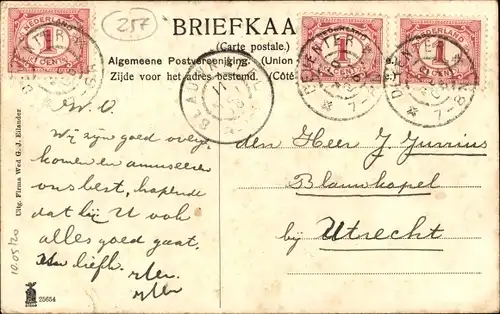 NEDERLAND
1
CENT
257
BRIEFKAA
(Carte postale.)
Algemeene Postvereeniging. (Union
Zijde voor het adres bestemd. (Côté
NEDERLAND
1
CENT
DEVENTER
NEDERLAND
1
CENT
DEVENTER
W. V.
Wij zijn goed overge
komen en amuseeren
ons best, hopende
dat bij U ook
alles goed gaat.
den Heer J Jurrius
Blauwkapel
bij Utrecht
Uitg. Firma Wed G. J. Eilander
10.05/20
25654